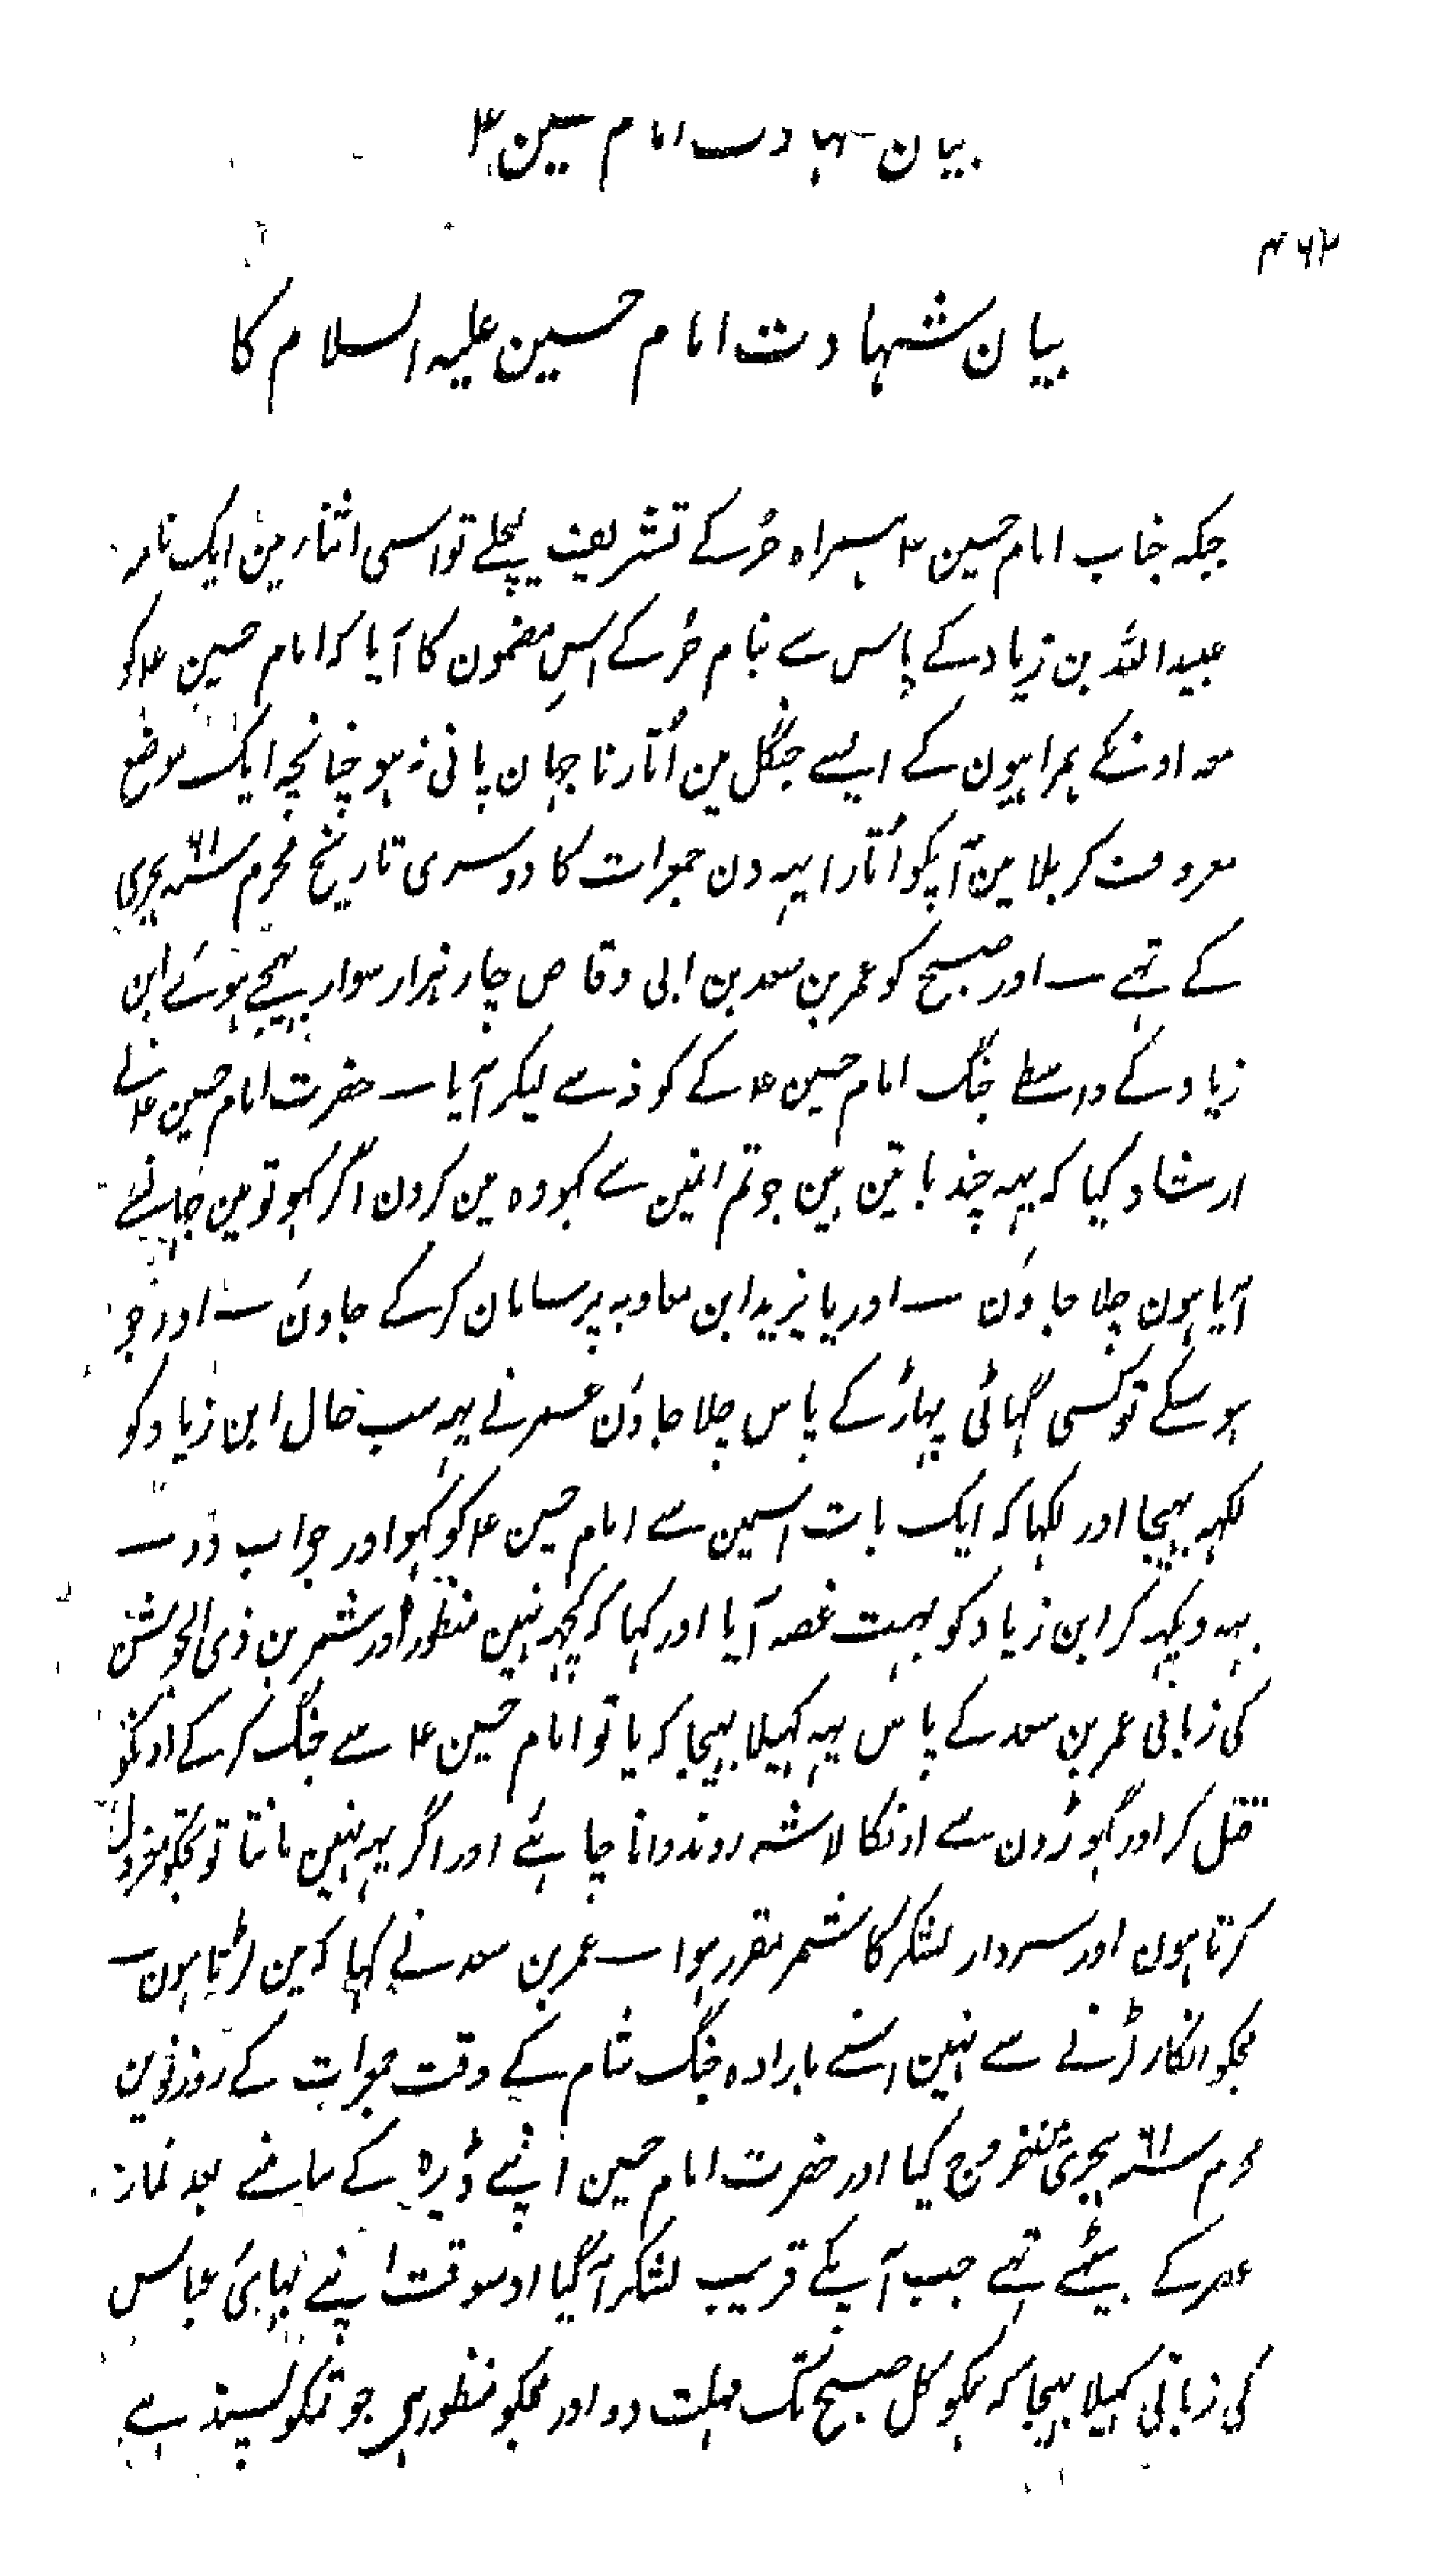 بیان شہادت امام حسین ع
۴۶۲
بیان شہادت امام حسین علیہ السلام کا
جبکہ جناب امام حسین ع ہمراہ حُر کے تشریف لیچلے تو اسی اثنار مین ایک نامہ
عبید اللہ بن زیاد کے پاس سے بنام حُر کے اس مضمون کا آیا کہ امام حسین ع کو
معہ اونکے ہمراہیون کے ایسے جنگل مین اُتارنا جہان پانی نہ ہو چنانچہ ایک موضع
معروف کربلا مین آپکو اُتارا یہہ دن جمعرات کا دوسری تاریخ محرم سنہ ۶۱ ہجری
کے تہے ۔ اور صبح کو عمر بن سعد بن ابی وقاص چار ہزار سوار بہیجے ہوئے ابن
زیاد کے واسطے جنگ امام حسین ع کے کوفہ سے لیکر آیا ۔ حضرت امام حسین ع نے
ارشاد کیا کہ یہہ چند باتین ہین جو تم انمین سے کہو وہ مین کرون اگر کہو تو مین جہانسے
آیا ہون چلا جاؤن ۔ اور یا یزید ابن معاویہ پر سامان کر کے جاؤن ۔ اور جو
ہو سکے تو کسی گہاٹی پہاڑ کے پاس چلا جاؤن عمر نے یہہ سب حال ابن زیاد کو
لکہہ بہیجا اور لکہا کہ ایک بات اسمین سے امام حسین ع کو کہو اور جواب دو ۔
یہہ دیکہہ کر ابن زیاد کو بہت غصہ آیا اور کہا کہ کچہہ نہین منظور اور شمر بن ذی الجوشن
کی زبانی عمر بن سعد کے پاس یہہ کہیلا بہیجا کہ یا تو امام حسین ع سے جنگ کر کے اونکو
قتل کر اور گہوڑون سے اونکا لاشہ روندوانا چاہئے اور اگر یہہ نہین مانتا تو تجکو معزول
کرتا ہون اور سردار لشکر کا شمر مقرر ہوا ۔ عمر بن سعد نے کہا کہ مین لڑتا ہون ۔
مجکو انکار لڑنے سے نہین اسنے بارادہ جنگ شام کے وقت جمعرات کے روز نوین
محرم سنہ ۶۱ ہجری خروج کیا اور حضرت امام حسین اپنے ڈیرہ کے سامنے بعد نماز
عصر کے بیٹہے تہے جب آپکے قریب لشکر آ گیا اوسوقت اپنے بہائی عباس
کی زبانی کہیلا بہیجا کہ ہمکو کل صبح تک مہلت دو اور مجکو منظور ہی جو تمکو پسند ہے